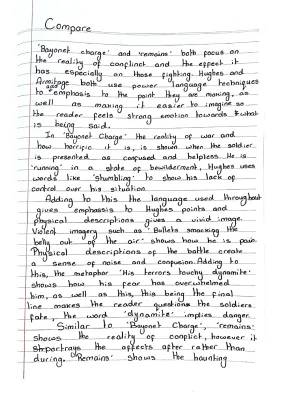 Compare
'Bayonet charge' and 'remains' both focus on
the reality of conflinct and the effect it
has especially on those fighting. Hughes and
Armitage both use power language techniques
to add emphasis to the point they are making, as
well as making it easier to imagine so
the reader feels strong emotion towards what
is being said.
In 'Bayonet Charge' the reality of war and
how horrific it is, is shown when the soldier
is presented as confused and helpless. He is
'running' in a state of bewilderment, Hughes uses
words like 'Stumbling' to show his lack of
control over his situation.
Adding to this the language used throughout
gives emphasis to Hughes points and
physical descriptions gives a vivid image.
Violent imagery such as 'Bullets smacking the
belly out of the air' shows how he is pain.
Physical descriptions of the battle create
a sense of noise and confusion. Adding to
this, the metaphor 'His terrors touchy dynamite'
shows how his fear has overwhelmed
him, as well as this, this being the final
line makes the reader question the soldiers
fate, the word 'dynamite' implies danger.
Similar to 'Bayonet Charge', 'remains'
shows the reality of conflict, however it
portrays the affects after rather than
during. 'Remains' shows the haunting